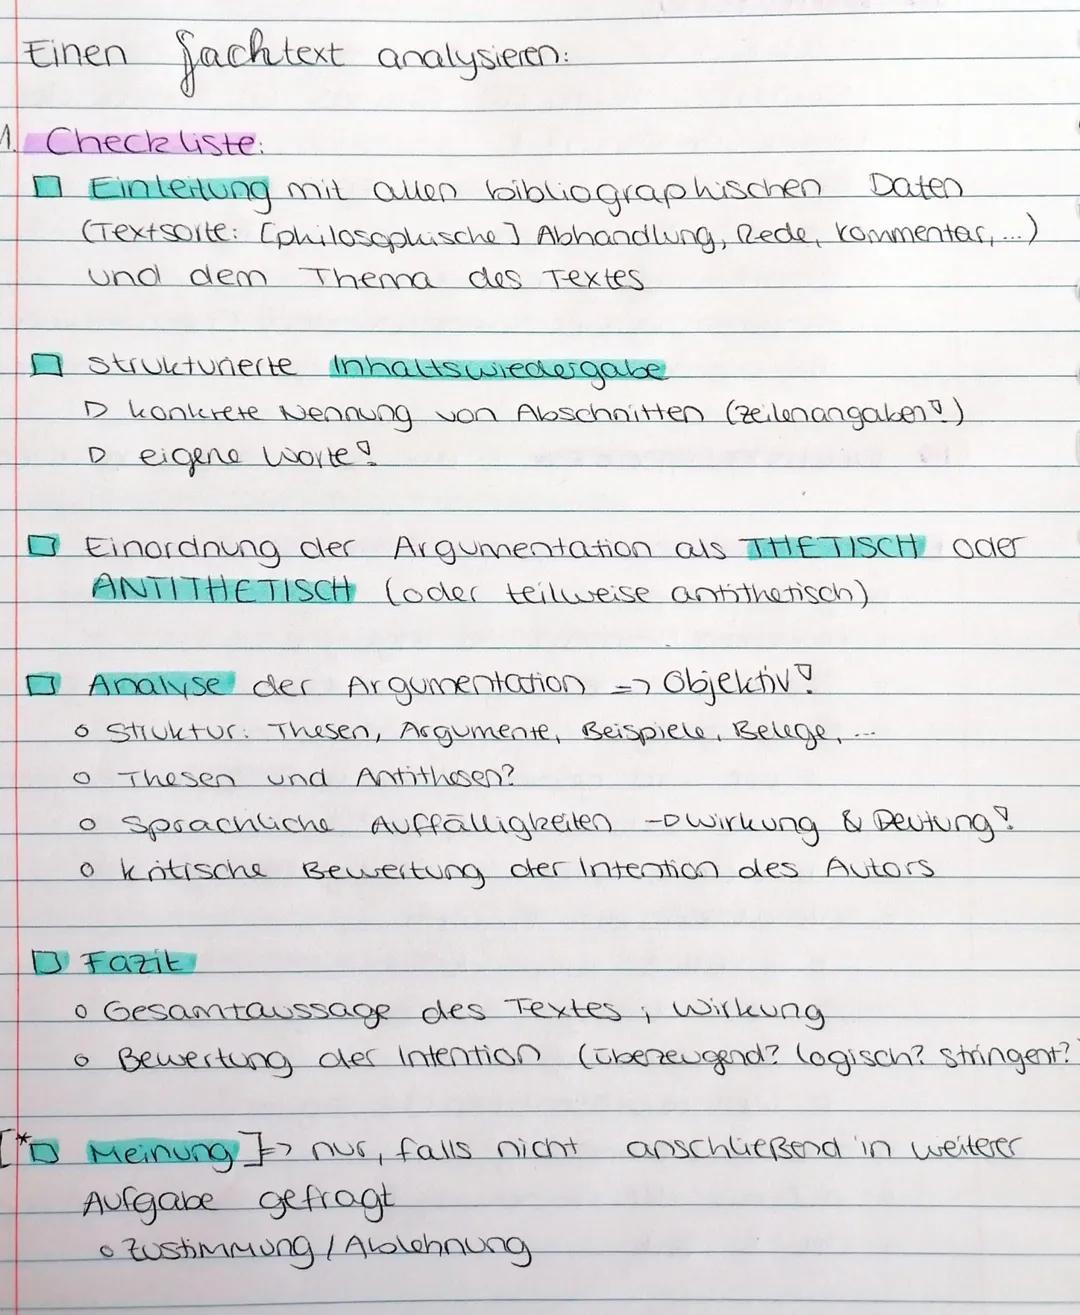 Einen Fachtext analysieren:
1. Checkliste:
□ Einleitung mit allen bibliographischen Daten
(Textsorte: [philosophische] Abhandlung, Rede, Kommentar, ...)
und dem Thema des Textes
□ strukturierte Inhaltswiedergabe
▷ konkrete Nennung von Abschnitten (Zeilenangaben!)
▷ eigene Worte!
□ Einordnung der Argumentation als THETISCH oder
ANTITHETISCH (oder teilweise antithetisch)
□ Analyse der Argumentation => Objektiv!
○ Struktur: Thesen, Argumente, Beispiele, Belege, ...
○ Thesen und Antithesen?
○ Sprachliche Auffälligkeiten → Wirkung & Deutung!
○ kritische Bewertung der Intention des Autors
□ Fazit
○ Gesamtaussage des Textes ; Wirkung
○ Bewertung der Intention (überzeugend? logisch? stringent?
[*□ Meinung] => nur, falls nicht anschließend in weiterer
Aufgabe gefragt
○ Zustimmung / Ablehnung